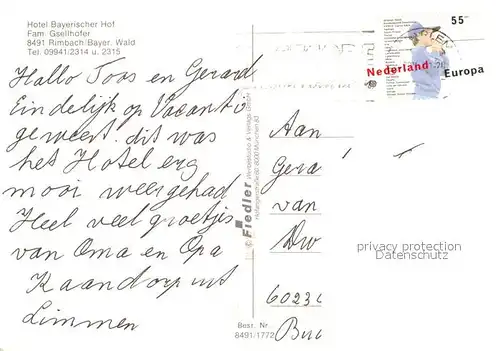 Hotel Bayerischer Hof
Fam. Gsellhofer
8491 Rimbach/Bayer. Wald
Tel. 09941/2314 u. 2315
55
Nederland Europa
Hallo Toos en Gerard
Eindelijk op Vacantie
geweest. dit was
het Hotel erg
mooi weer gehad
Heel veel groetjes
van Oma en Opa
Kaandorp uit
Limmen
© Fiedler
Werbestudio & Verlags GmbH
8000 München 83
Best. Nr.
8491/1772
Aan
Gera
van
Dw
6023
Bu
privacy protection
Datenschutz